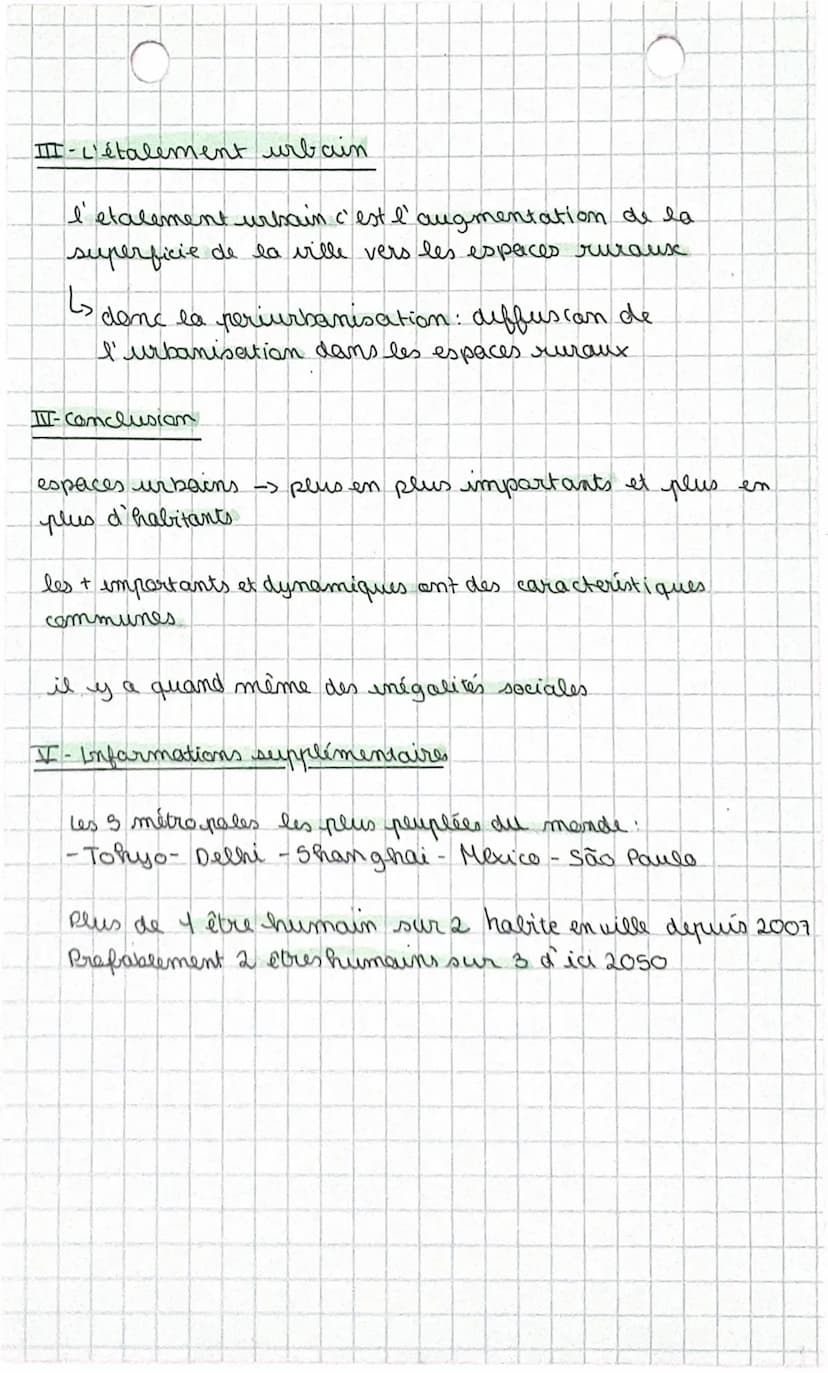 III - L'étalement urbain
l'etalement urbain c'est l'augmentation de la
superficie de la ville vers les espaces ruraux
↳ donc la periurbanisation : diffusion de
l'urbanisation dans les espaces ruraux
IV - Conclusion
espaces urbains -> plus en plus importants et plus en
plus d'habitants
les + importants et dynamiques ont des caractéristiques
communes
il y a quand même des inégalités sociales
V - Informations supplémentaires
Les 5 métropoles les plus peuplées du monde :
- Tokyo - Delhi - Shanghai - Mexico - São Paulo
Plus de 1 être humain sur 2 habite en ville depuis 2007
Probablement 2 êtres humains sur 3 d'ici 2050